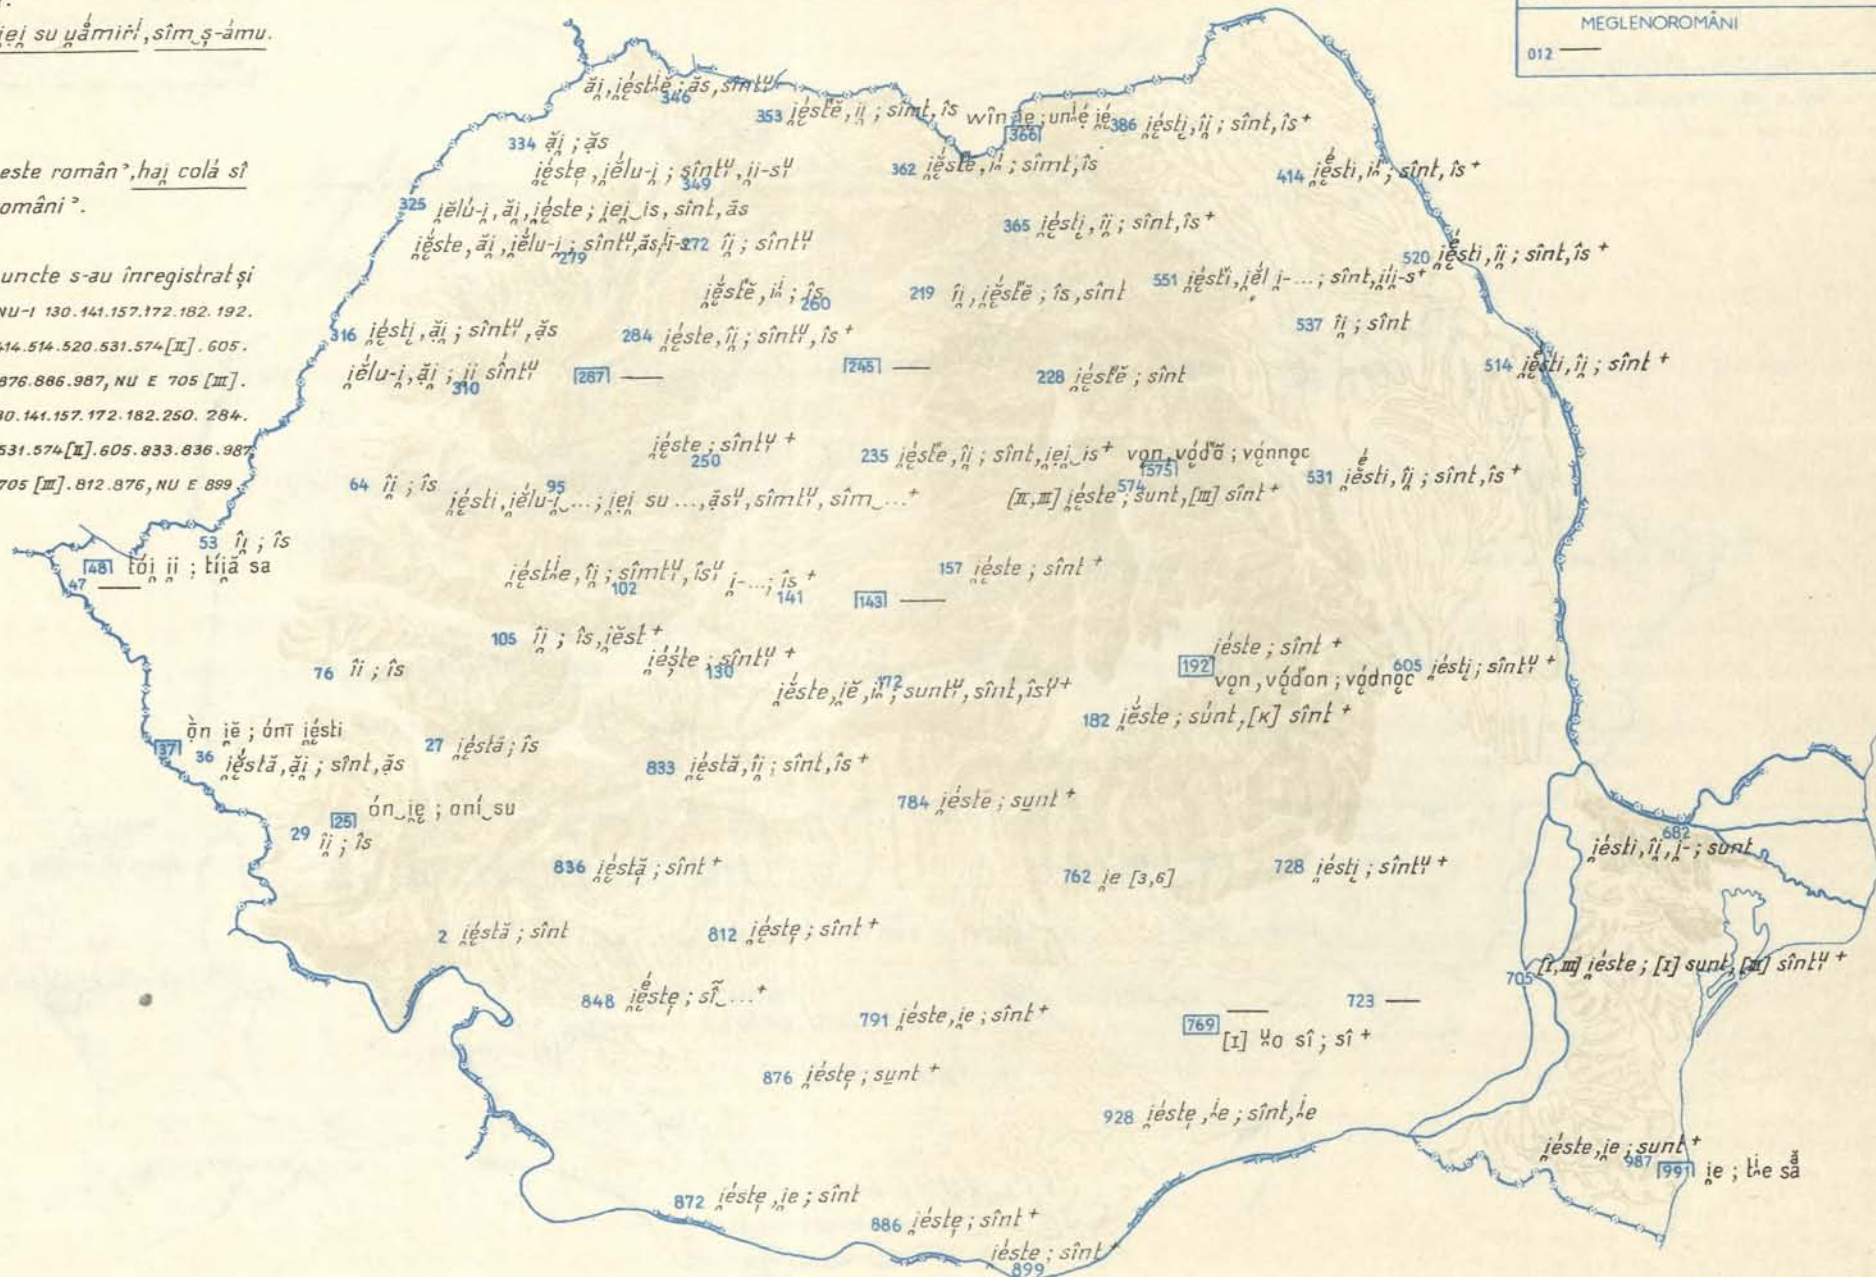 iei su u̯ámirĭ, sîm‿ș-ámu.
este român”, hai̯ colá sî
omâni”.
uncte s-au înregistrat și
NU-I 130.141.157.172.182.192.
414.514.520.531.574[II].605.
876.886.987, NU E 705 [III].
30.141.157.172.182.250. 284.
531.574[II].605.833.836.987
705 [III].812.876, NU E 899.
MEGLENOROMÂNI
012 —
346 ăi̯, i̯éstĕ; ăs, sîntᵘ
353 i̯éstĕ, îi̯; sîmt, îs
366 wîn i̯e; unĭé i̯é
386 i̯ésti̯, îi̯; sînt, îs +
334 ăi̯; ăs
349 i̯éste, i̯élu-i̯; sîntᵘ, i̯i-sᵘ
362 i̯éste, iĭ; sîmt, îs
414 i̯ésti, iĭ; sînt, îs +
325 i̯élu-i̯, ăi̯, i̯éste; i̯ei̯‿is, sînt, ăs
365 i̯ésti̯, îi̯; sînt, îs +
279 i̯éste, ăi̯, i̯élu-i̯; sîntᵘ, ăs, i̯i-s
272 îi̯; sîntᵘ
520 i̯ésti, îi̯; sînt, îs +
260 i̯éstĕ, iĭ; îs
219 îi̯, i̯éstĕ; îs, sînt
551 i̯ésti, i̯él i̯-...; sînt, i̯ii̯-s +
316 i̯ésti̯, ăi̯; sîntᵘ, ăs
284 i̯éste, îi̯; sîntᵘ, îs +
537 îi̯; sînt
310 i̯élu-i̯, ăi̯; i̯i sîntᵘ
287 —
245 —
228 i̯éstĕ; sînt
514 i̯ésti, îi̯; sînt +
250 i̯éste; sîntᵘ +
235 i̯éste, îi̯; sînt, i̯ei̯‿is +
575 vo̧n, vó̧dŏ; vónno̧c
64 îi̯; îs
95 i̯ésti, i̯élu-i̯‿...; i̯ei̯ su ..., ăsᵘ, sîmtᵘ, sîm‿... +
574 [II,III] i̯éste; sunt, [III] sînt +
531 i̯ésti, îi̯; sînt, îs +
53 îi̯; îs
48 tói̯ i̯i; tíi̯ă sa
47 —
102 i̯éstĭe, îi̯; sîmtᵘ, îsᵘ
141 i̯-...; îs +
143 —
157 i̯éste; sînt +
105 îi̯; îs, i̯ĕst +
130 i̯éște; sîntᵘ +
76 îi; îs
172 i̯éste, i̯ĕ, iĭ; suntᵘ, sînt, îsᵘ +
192 i̯éste; sînt +
vo̧n, vó̧don; vó̧dno̧c
605 i̯ésti̯; sîntᵘ +
182 i̯éste; súnt, [K] sînt +
37 ò̧n i̯ĕ; ónī i̯ésti
36 i̯éstă, ăi̯; sînt, ăs
27 i̯éstă; îs
833 i̯éstă, îi̯; sînt, îs +
784 i̯éste; sunt +
25 ón‿i̯e; oní‿su
29 îi̯; îs
836 i̯éstă; sînt +
762 i̯e [3,6]
728 i̯ésti̯; sîntᵘ +
682 i̯ésti, îi̯, i̯-; sunt
2 i̯éstă; sînt
812 i̯éste; sînt +
705 [I,III] i̯éste; [I] sunt, [III] sîntᵘ +
848 i̯éste; sî̃‿... +
791 i̯éste, i̯e; sînt +
769 —
[I] u̯o sî; sî +
723 —
876 i̯éste; sunt +
928 i̯éste, ĭe; sînt, ĭe
987 i̯éste, i̯e; sunt +
991 i̯e; tĭe să
872 i̯éste, i̯e; sînt
886 i̯éste; sînt +
899 i̯éste; sînt +